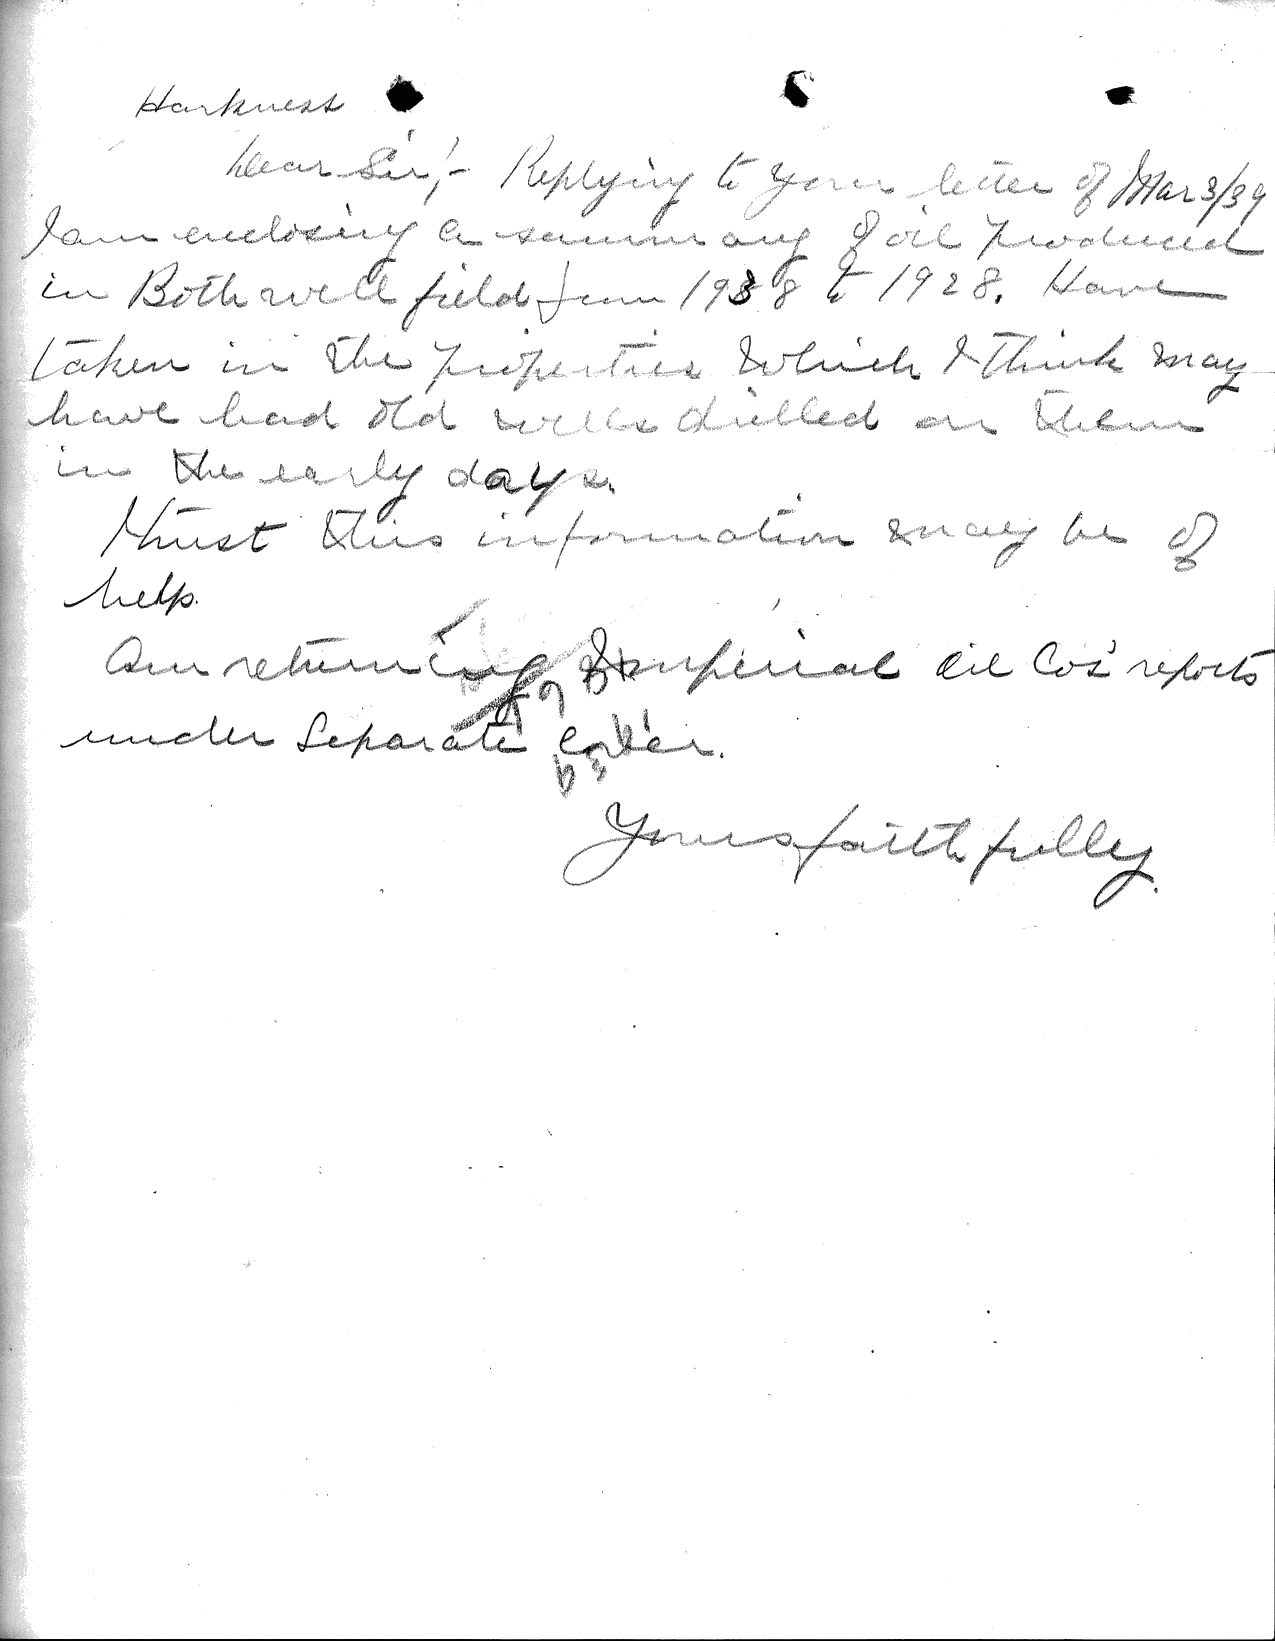 Harkness
Dear Sir,- Replying to your letter of Mar 3/39
I am enclosing a summary of oil produced
in Bothwell field from 1938 to 1928. Have
taken in the properties which I think may
have had old wells drilled on them
in the early days.
Trust this information may be of
help.
Am returning Imperial Oil Cos' reports
under separate cover.
Yours faithfully